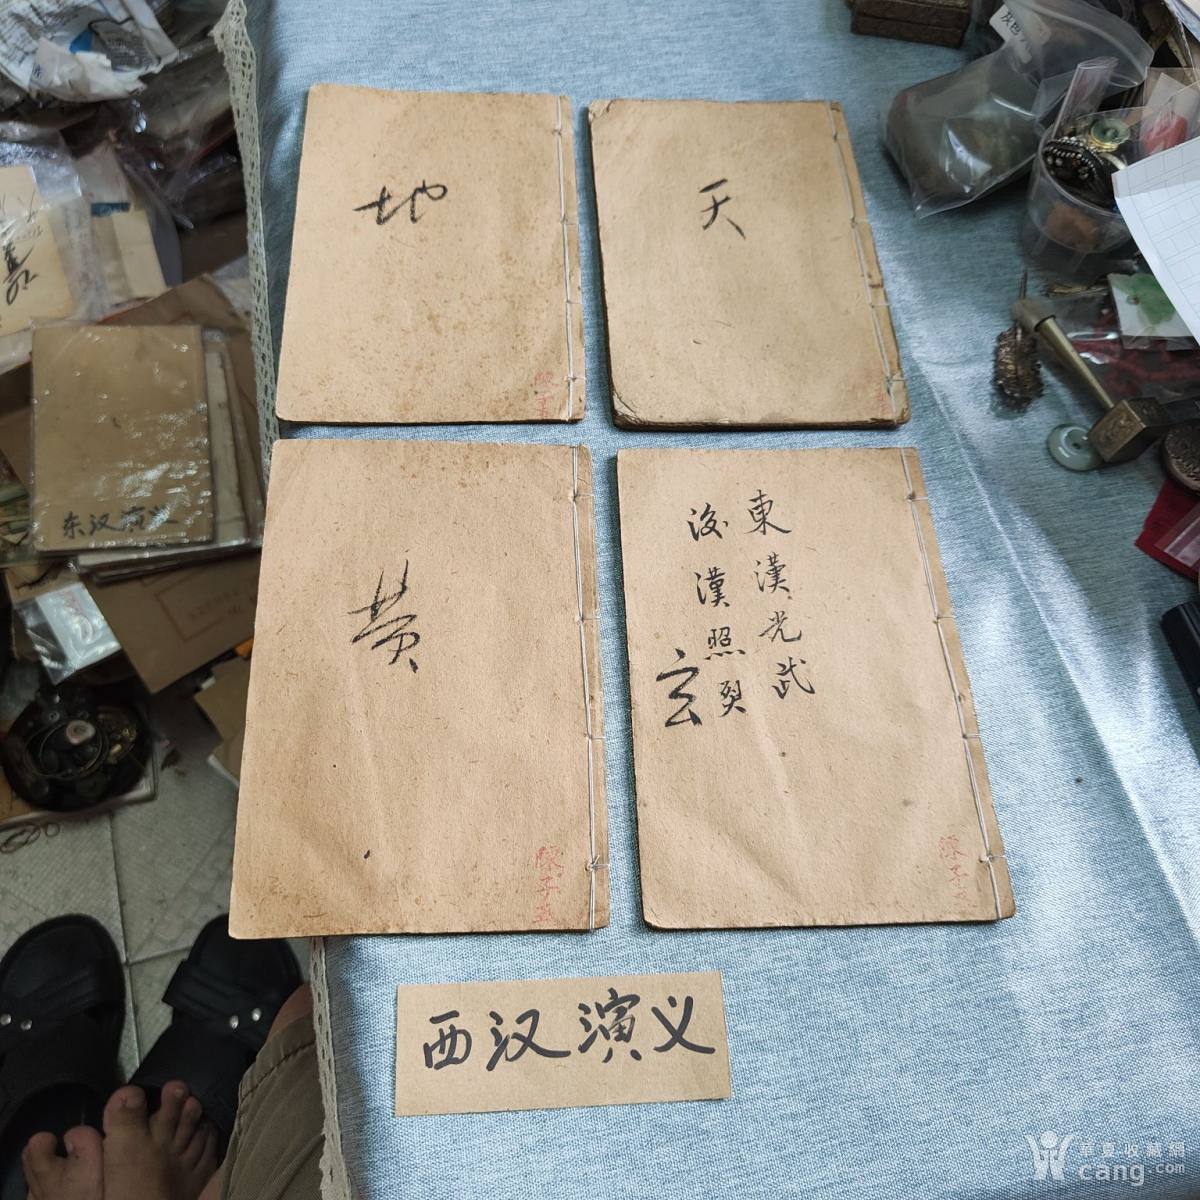 天
地
東漢光武
後漢照烈
玄
黄
陳子立
西汉演义
东汉演义
華夏收藏網
cang.com